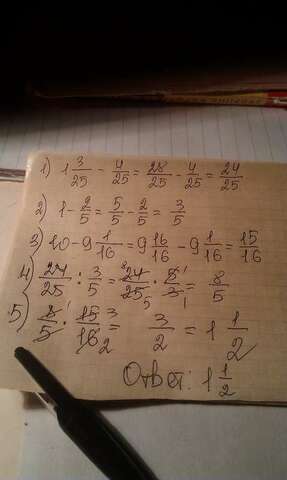 1) 1 3/25 - 4/25 = 28/25 - 4/25 = 24/25
2) 1 - 2/5 = 5/5 - 2/5 = 3/5
3) 10 - 9 1/16 = 9 16/16 - 9 1/16 = 15/16
4) 24/25 : 3/5 = 24/25 : 5/3 = 8/5
5) 8/5 : 15/16 = 3/2 = 1 1/2
Ответ: 1 1/2